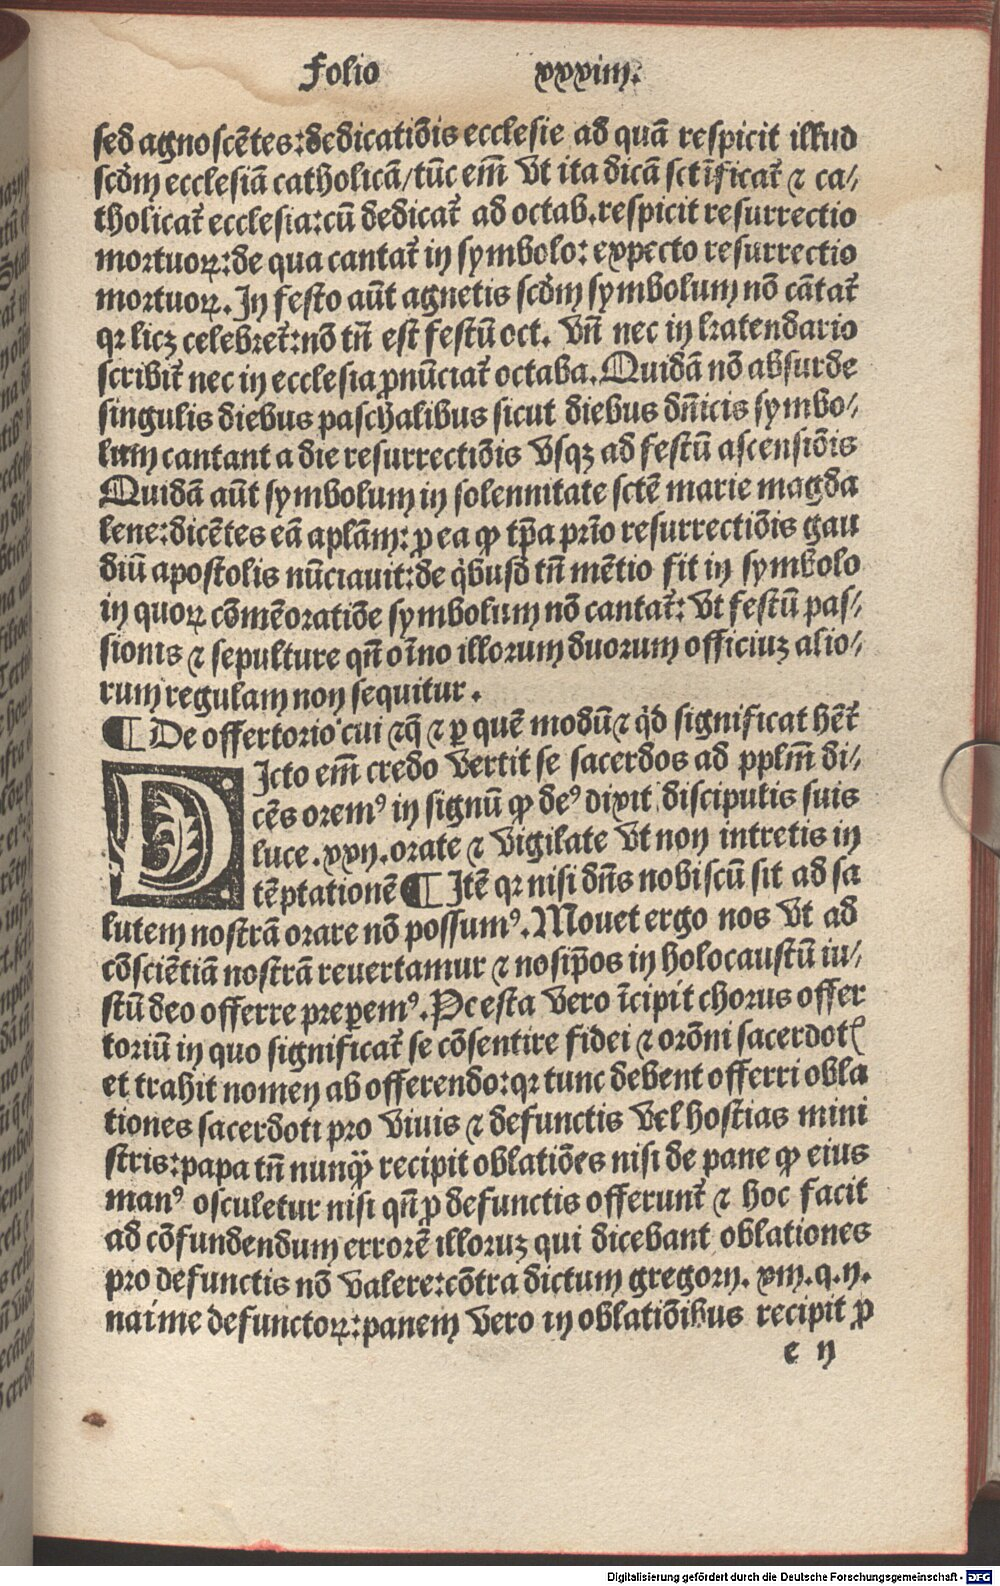 Folio xxxiiij.
sed agnoscētes: dedicatiōis ecclesie ad quā respicit illud
scd̄m ecclesiā catholicā/ tūc em̄ vt ita dicā sctīficat᷑ ⁊ ca⸗
tholicat᷑ ecclesia: cū dedicat᷑ ad octab. respicit resurrectio
mortuoꝝ: de qua cantat᷑ in symbolo: expecto resurrectio
mortuoꝝ. In festo aūt agnetis scd̄m symbolum nō cātat᷑
qꝛ licꝫ celebret᷑: nō tn̄ est festū oct. Vn̄ nec in kalendario
scribit᷑ nec in ecclesia ꝓnūciat᷑ octaba. Quidā nō absurde
singulis diebus paschalibus sicut diebus dn̄icis symbo⸗
lum cantant a die resurrectiōis vsqꝫ ad festū ascensiōis
Quidā aūt symbolum in solennitate sctē marie magda
lene: dicētes eā aplām: ꝓ ea ꝙ tp̄a prīo resurrectiōis gau
diū apostolis nūciauit: de qͥbusd tn̄ mētio fit in symbolo
in quoꝝ cōmēoratiōe symbolum nō cantat᷑: vt festū pas⸗
sionis ⁊ sepulture qn̄ oīno illorum duorum officiuꝫ alio⸗
rum regulam non sequitur.
¶ De offertorio cui ⁊qͣ ⁊ ꝑ quē modū ⁊ qͥd significat hēt᷑
DIcto em̄ credo vertit se sacerdos ad pplm̄ di⸗
cēs oremꝰ in signū ꝙ deꝰ dixit discipulis suis
luce. xxij. orate ⁊ vigilate vt non intretis in
tēptationē ¶ Itē qꝛ nisi dn̄s nobiscū sit ad sa
lutem nostrā orare nō possumꝰ. Mouet ergo nos vt ad
cōsciētiā nostrā reuertamur ⁊ nosip̄os in holocaustū iu⸗
stū deo offerre preꝑemꝰ. Pc esta vero īcipit chorus offer
toriū in quo significat᷑ se cōsentire fidei ⁊ orōni sacerdotꝭ
et trahit nomen ab offerendo: qꝛ tunc debent offerri obla
tiones sacerdoti pro viuis ⁊ defunctis vel hostias mini
stris: papa tn̄ nunqͣ̄ recipit oblatiōes nisi de pane ꝙ eius
manꝰ osculetur nisi qn̄ ꝓ defunctis offerunt᷑ ⁊ hoc facit
ad cōfundendum errorē illoruꝫ qui dicebant oblationes
pro defunctis nō valere: cōtra dictum gregorij. xiij. q. ij.
naime defunctoꝝ: panem vero in oblatiōibus recipit ꝓ
e ij
Digitalisierung gefördert durch die Deutsche Forschungsgemeinschaft - DFG